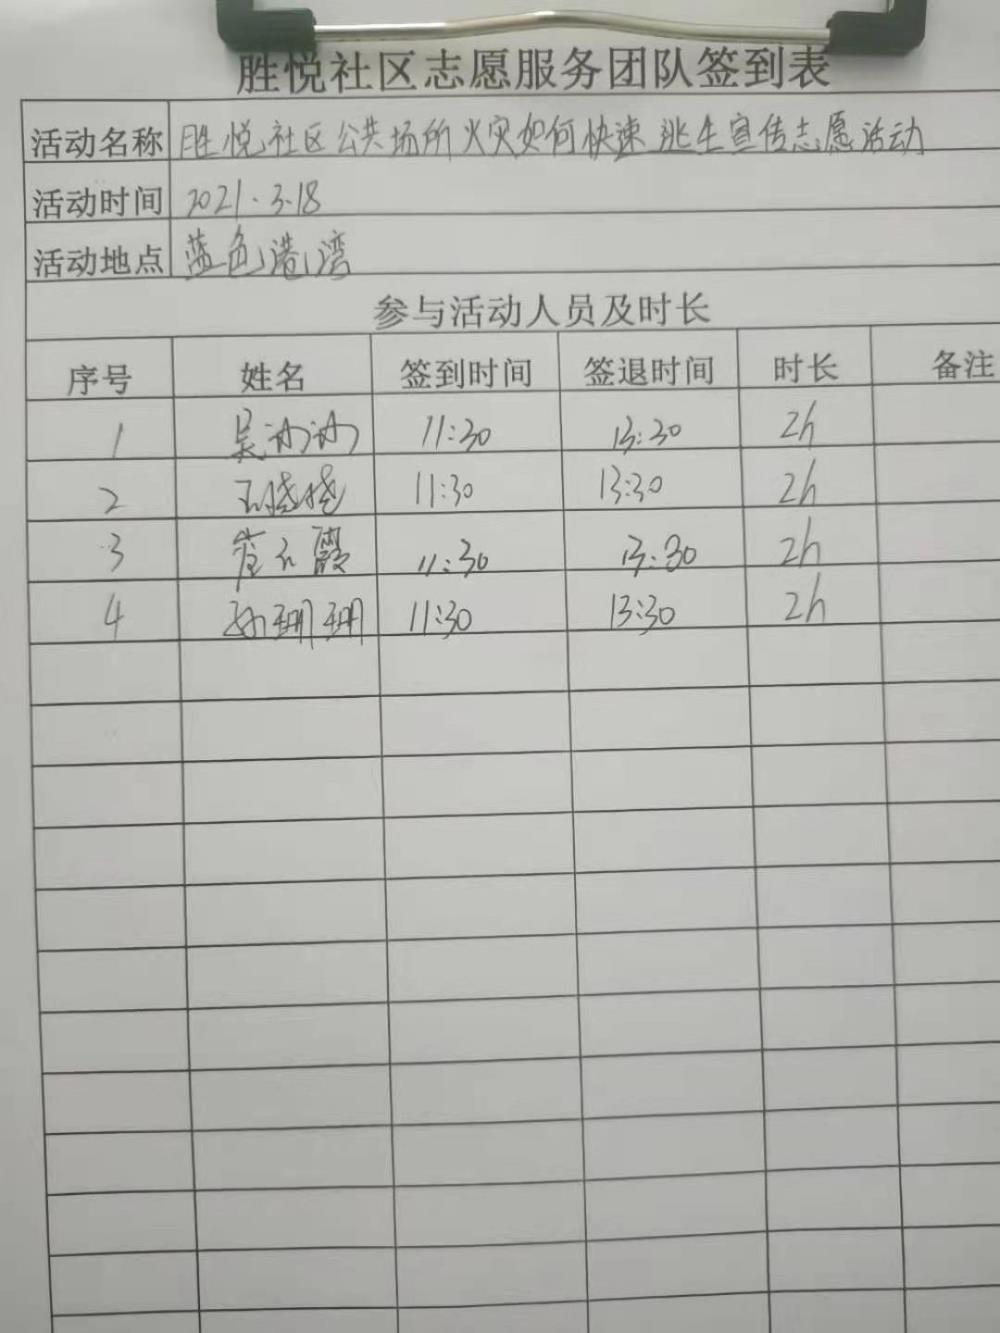 胜悦社区志愿服务团队签到表
活动名称 胜悦社区公共场所火灾如何快速逃生宣传志愿活动
活动时间 2021.3.18
活动地点 蓝色港湾
参与活动人员及时长
序号 姓名 签到时间 签退时间 时长 备注
1 吴沙沙 11:30 13:30 2h
2 王晓晓 11:30 13:30 2h
3 崔云霞 11:30 13:30 2h
4 孙珊珊 11:30 13:30 2h